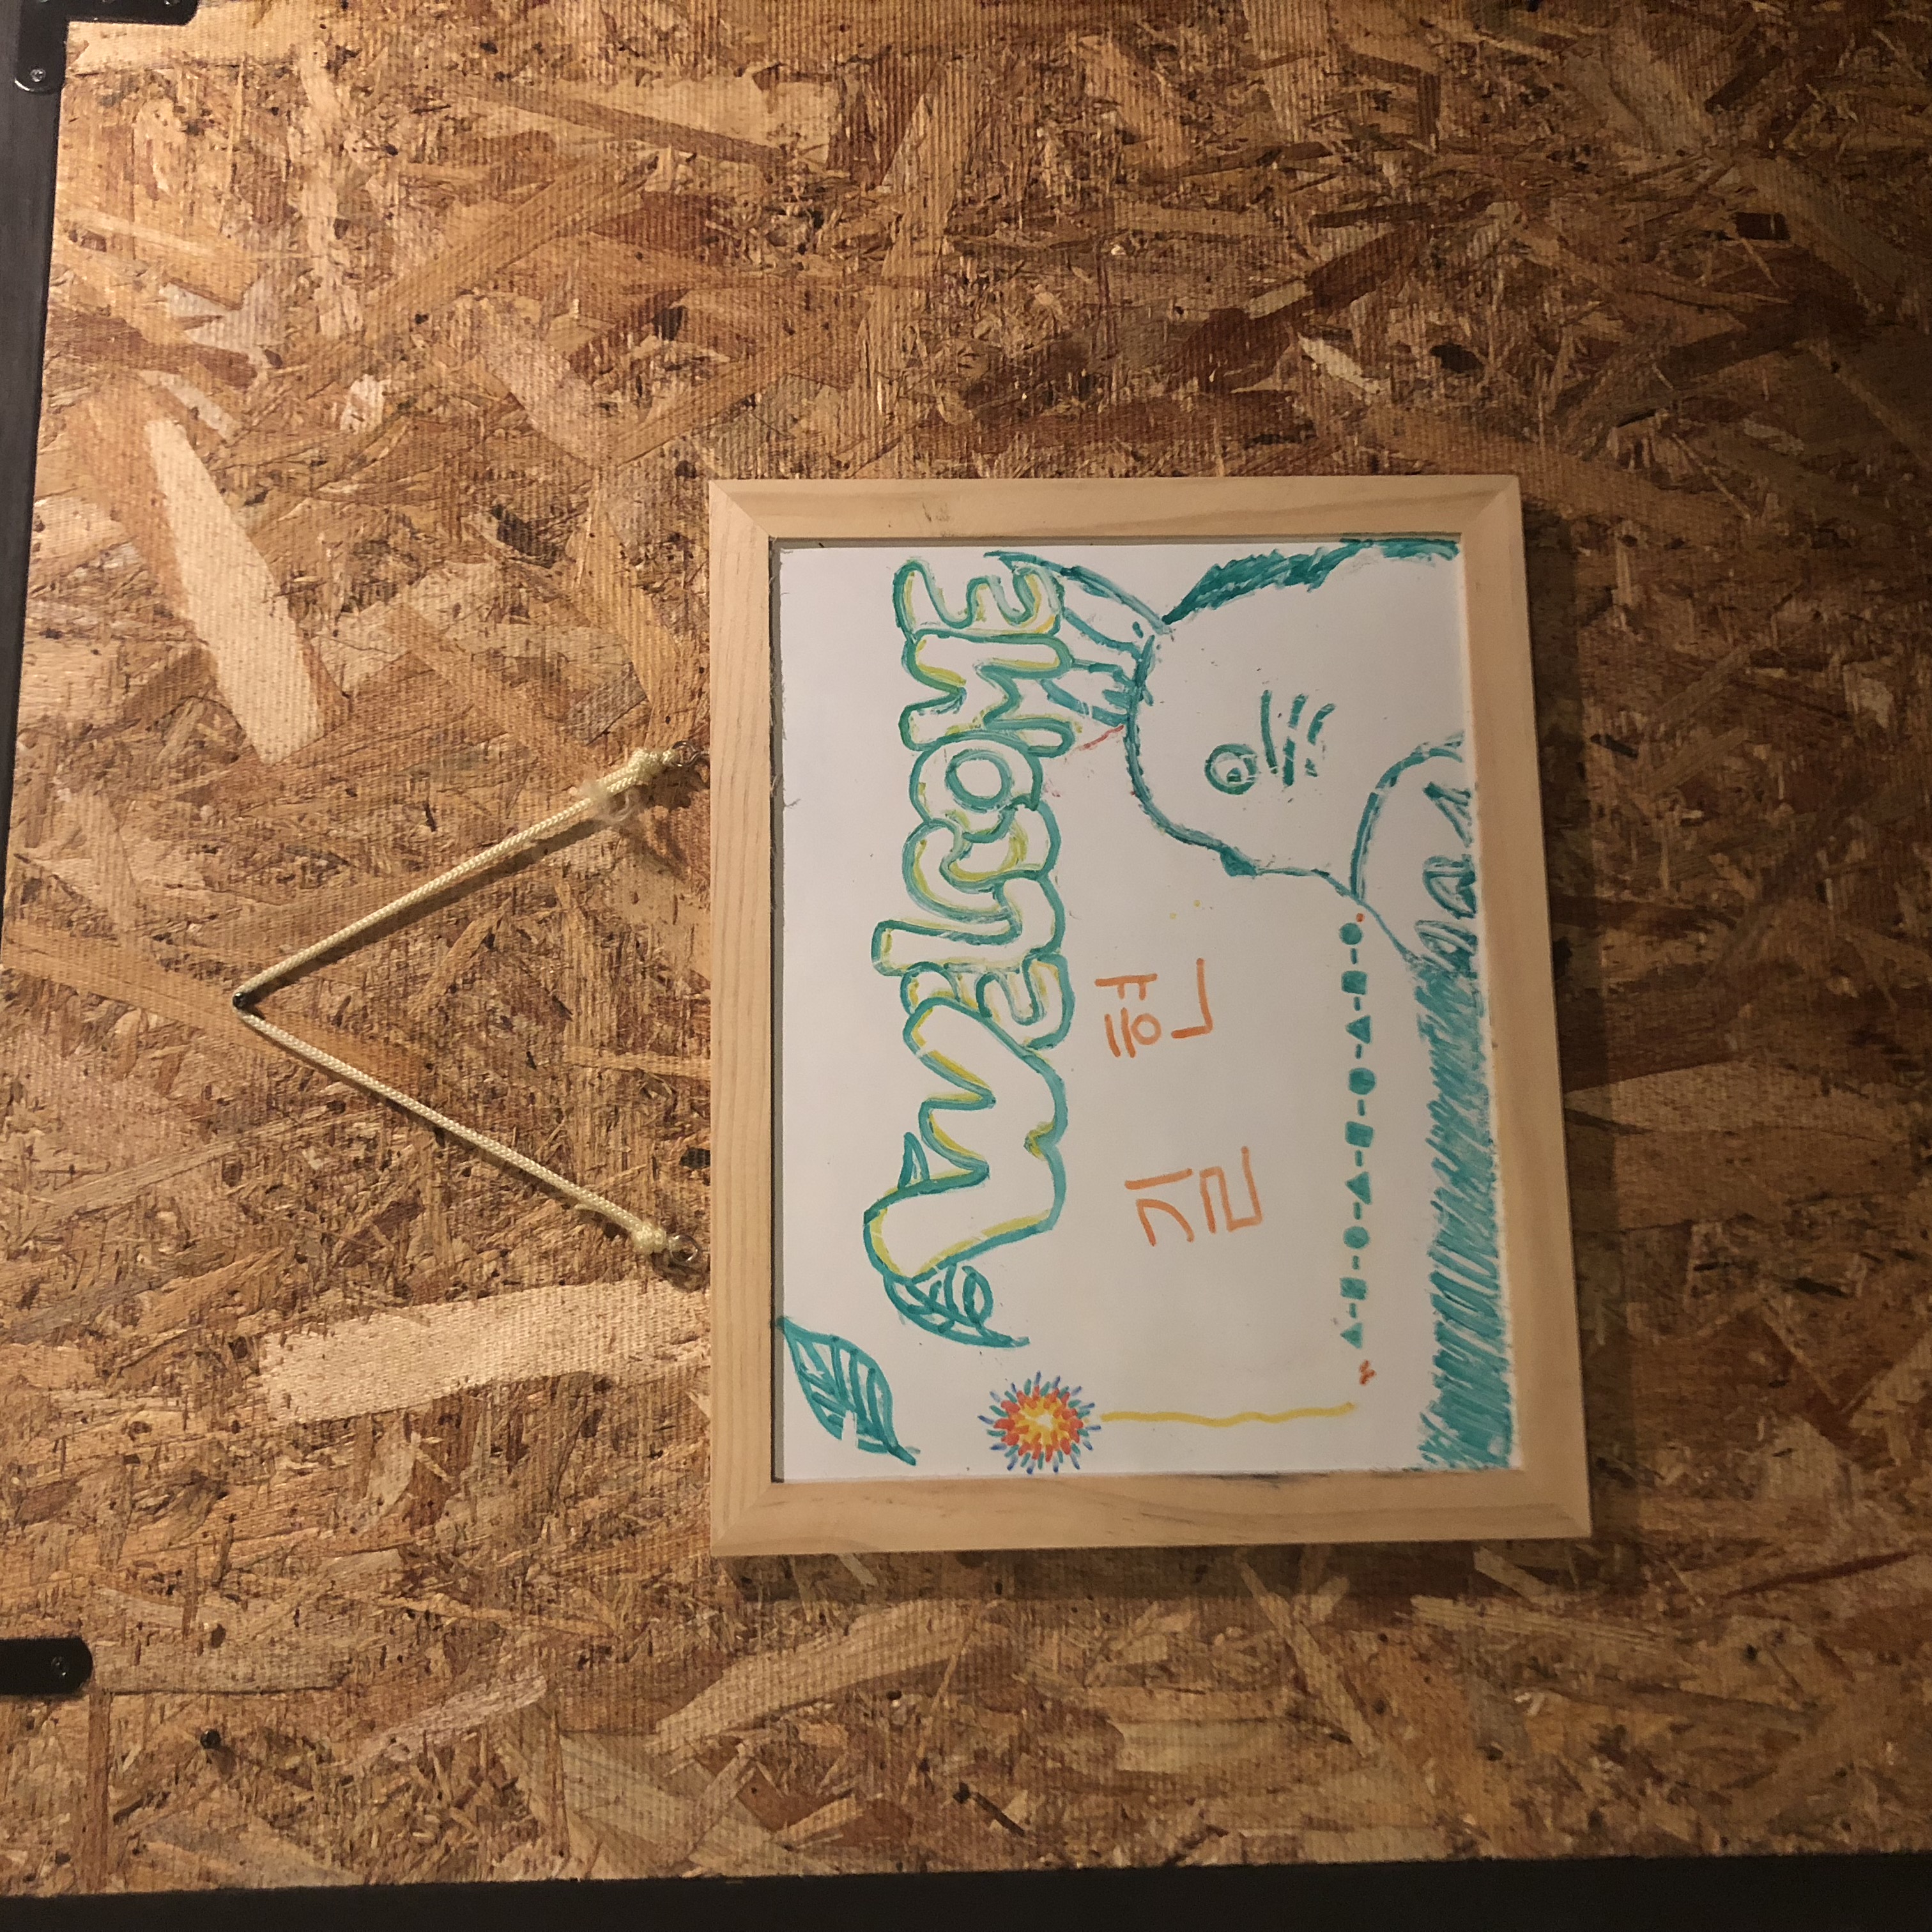 WELCOME
길 현